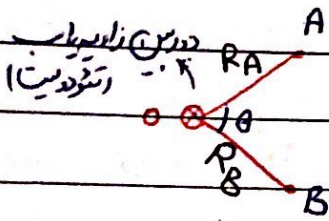 دوربین زاویه یاب
(تئودولیت)
A
RA
θ
RB
B